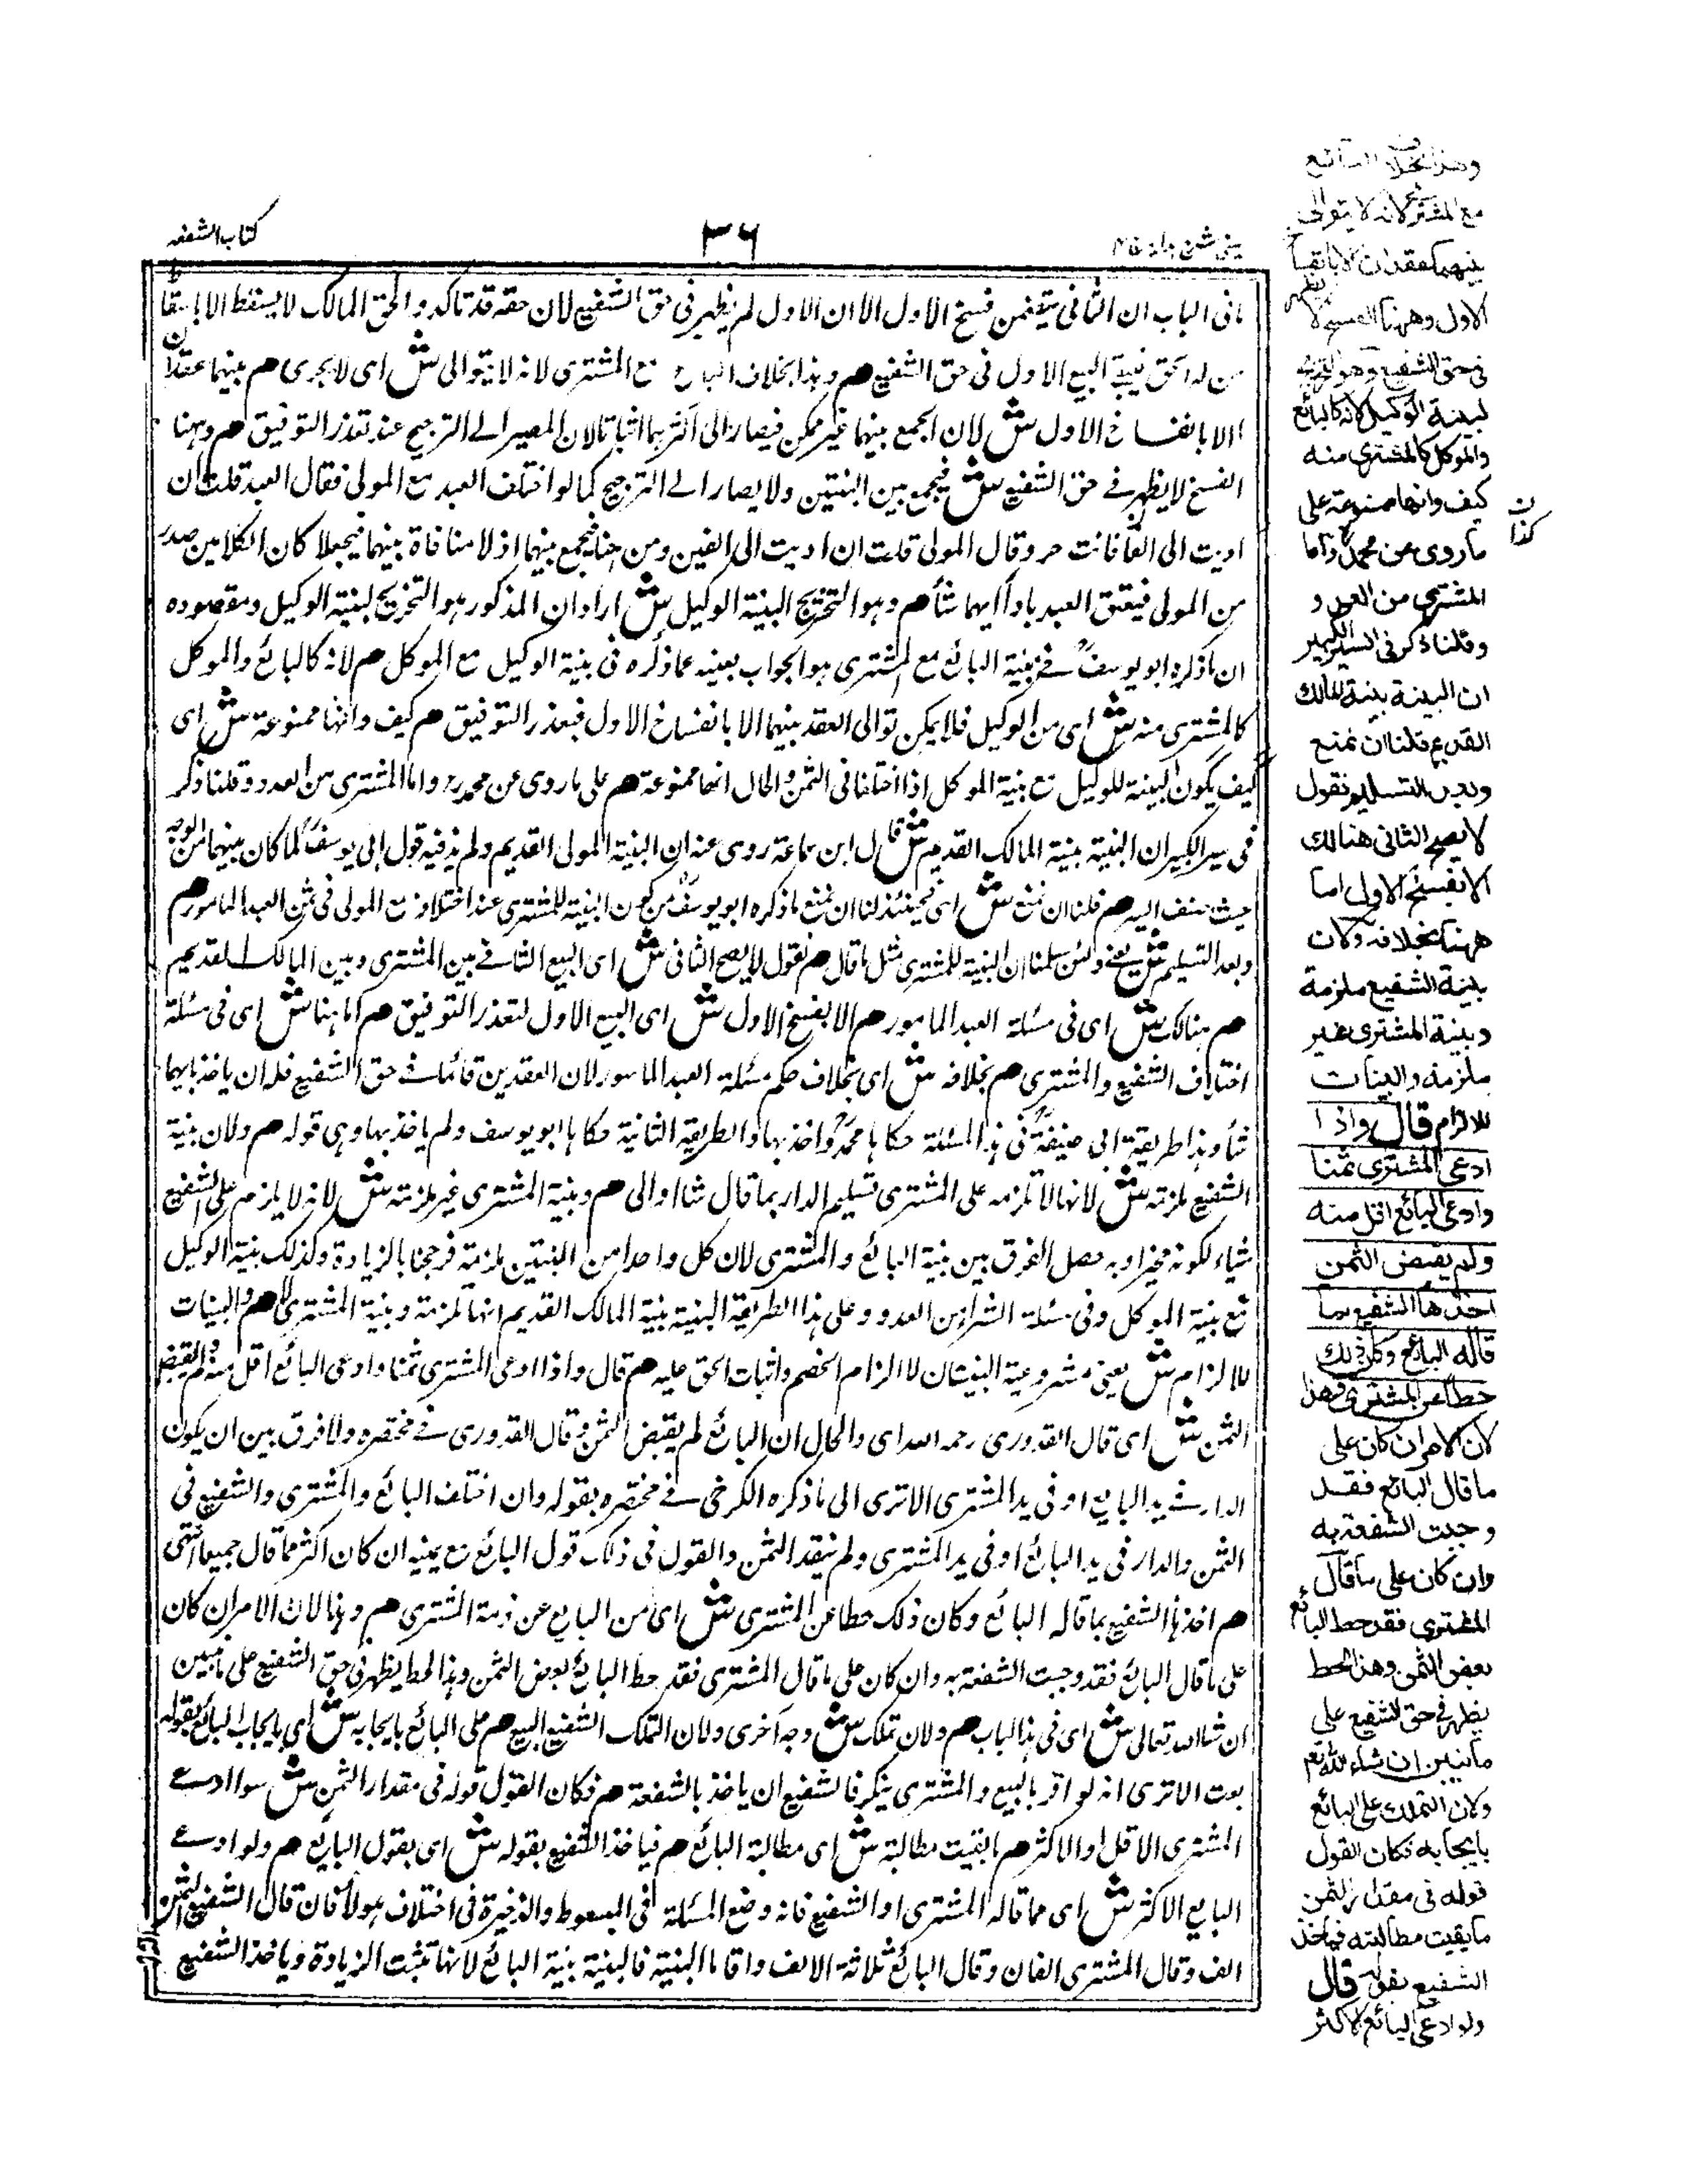 كتاب الشفعه
٣٦
عينى شرح هدايه
ما فى الباب ان الثانى يتضمن فسخ الاول الا ان الاول لم يظهر فى حق الشفيع لان حقه قد تاكد و الحق المالك لا يسقط الا باسقاط
من له الحق فيبقى البيع الاول فى حق الشفيع هم وهذا بخلاف البائع مع المشترى لانه لا يتوالى ش اى لا يجرى هم بينهما عقدان
الا بانفساخ الاول ش لان الجمع بينهما غير ممكن فيصار الى اكثرهما اثباتا لان المصير الے الترجيح عند تعذر التوفيق هم وههنا
الفسخ لا يظهر فے حق الشفيع ش فيجمع بين البنتين ولا يصار الے الترجيح كما لو اختلف العبد مع المولى فقال العبد قلت ان
اديت الى الفا فانت حر وقال المولى قلت ان اديت الى الفين ومن هنا يجمع بينهما اذ لا منافاة بينهما فيجعلا كان الكلامين صدر
من المولى فيعتق العبد باداء ايهما شاء هم وهو التخريج البنية الوكيل ش اراد ان المذكور هو التخريج لبنية الوكيل ومقصوده
ان ما ذكره ابو يوسف فے بنية البائع مع المشترى هو الجواب بعينه عما ذكره فى بنية الوكيل مع الموكل هم لانه كالبائع والموكل
كالمشترى منه ش اى من الوكيل فلا يمكن توالى العقد بينهما الا بانفساخ الاول فبعذر التوفيق هم كيف وانها ممنوعة ش اى
كيف يكون البينة للوكيل مع بنية الموكل اذا اختلفا فى الثمن والحال انها ممنوعة هم على ما روى عن محمد واما المشترى من العدو وقلنا ذكر
فى سير الكبير ان البنية بينة المالك القديم ش قال ابن سماعة روى عنه ان البنية المولى القديم ولم يذ فيه قول ابى يوسف لما كان بينهما من الوجه
حيث صنف السير هم فلنا ان نمنع ش اى فحينئذ لنا ان نمنع ما ذكره ابو يوسف من كون البنية للمشترى عند اختلافه مع المولى فى ثمن العبد المامور هم
وبعد التسليم ش يعنے ولئن سلمنا ان البنية للمشترى مثل ما قال هم نقول لا يصح الثانى ش اى البيع الثانے بين المشترى وبين المالك القديم
هم هنالك ش اى فى مسئلة العبد المامور هم الا بفسخ الاول ش اى البيع الاول لتعذر التوفيق هم اما هنا ش اى فى مسئلة
اختلاف الشفيع والمشترى هم بخلافه ش اى بخلاف حكم مسئلة العبد المامور لان العقدين قائمان فے حق الشفيع فله ان ياخذ بايهما
شاء وهذا طريقة ابى حنيفة فى هذه المسئلة حكاها محمد واخذ بها والطريقة الثانية حكاها ابو يوسف ولم ياخذ بها وهى قوله هم ولان بنية
الشفيع ملزمة ش لانها لا تلزمه على المشترى تسليم الدار بما قال شاء او ابى هم وبنية المشترى غير ملزمة ش لانه لا يلزم هم على الشفيع
شياء لكونه مخيرا وبه حصل الفرق بين بنية البائع والمشترى لان كل واحدا من البنتين ملزمة فرجحنا بالزيادة وكذلك بنية الوكيل
مع بنية الموكل وفى مسئلة الشراء من العدو وعلى هذا الطريقة البنية بنية المالك القديم انها ملزمة وبنية المشترى لا هم والبينات
للالزام ش يعنى مشروعية البينات لالزام الخصم واثبات الحق عليه هم قال واذا ادعى المشترى ثمنا وادعى البائع اقل منه ولم يقبض
الثمن ش اى قال القدورى رحمه الله اى والحال ان البائع لم يقبض الثمن وقال القدورى فے مختصره ولا فرق بين ان يكون
الدار فے يد البايع او فى يد المشترى الا ترى الى ما ذكره الكرخى فے مختصره بقوله وان اختلف البائع والمشترى والشفيع فى
الثمن والدار فى يد البائع او فى يد المشترى ولم ينقد الثمن والقول فى ذلك قول البائع مع يمينه ان كان اكثر مما قال جميعا انتهى
هم اخذها الشفيع بما قاله البائع وكان ذلك حطا عن المشترى ش اى من البايع عن ذمة المشترى هم وهذا لان الامر ان كان
على ما قال البائع فقد وجبت الشفعة به وان كان على ما قال المشترى فقد حط البائع بعض الثمن وهذا الحط يظهر فى حق الشفيع على ما نبين
ان شاء الله تعالى ش اى فى هذا الباب هم ولان تملك ش وجه آخرى ولان التملك الشفيع البيع هم على البائع بايجابه ش اى بايجاب البائع بقوله
بعت الا ترى انه لو اقر بالبيع والمشترى ينكر فالشفيع ان ياخذ بالشفعة هم فكان القول قوله فى مقدار الثمن ش سواء ادعے
المشترى الاقل او الاكثر هم ما بقيت مطالبة ش اى مطالبة البائع هم فياخذ الشفيع بقوله ش اى بقول البايع هم ولو ادعے
البايع الاكثر ش اى مما قاله المشترى او الشفيع فانه وضع المسئلة فى المبسوط والذخيرة فى اختلاف هؤلاء فان قال الشفيع الثمن
الف وقال المشترى الفان وقال البائع ثلاثة الاف واقاما البنية فالبنية بنية البائع لانها تثبت الزيادة وياخذ الشفيع
وهذا بخلاف البائع
مع المشترى لانه لا يتوالى
بينهما عقدان الا بانفساخ
الاول وههنا الفسخ لا يظهر
فى حق الشفيع وهو التخريج
لبينة الوكيل لانه كالبائع
والموكل كالمشترى منه
كيف وانها ممنوعة على
ما روى عن محمد واما
المشترى من العدو و
وقلنا ذكر فى السير الكبير
ان البينة بينة المالك
القديم فلنا ان نمنع
وبعد التسليم نقول
لا يصح الثانى هنالك
الا بفسخ الاول اما
ههنا بخلافه ولان
بينة الشفيع ملزمة
وبينة المشترى غير
ملزمة والبينات
للالزام قال واذا
ادعى المشترى ثمنا
وادعى البائع اقل منه
ولم يقبض الثمن
اخذها الشفيع بما
قاله البائع وكان ذلك
حطا عن المشترى وهذا
لان الامر ان كان على
ما قال البائع فقد
وجبت الشفعة به
وان كان على ما قال
المشترى فقد حط البائع
بعض الثمن وهذا الحط
يظهر فى حق الشفيع على
ما نبين ان شاء الله تعم
ولان التملك على البائع
بايجابه فكان القول
قوله فى مقدار الثمن
ما بقيت مطالبته فياخذ
الشفيع بقوله قال
ولو ادعى البائع الاكثر